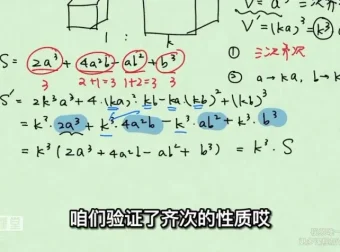 V = a³ 三次齐次
V' = (ka)³ = k³
S = 2a³ + 4a²b - ab² + b³
3 2+1=3 1+2=3 3
① 三次齐次
② a → ka, b → k
S' = 2k³a³ + 4·(ka)²·kb - ka(kb)² + (kb)³
= k³·2a³ + k³·4a²b - k³·ab² + k³·b³
= k³(2a³ + 4a²b - ab² + b³) = k³·S
咱们验证了齐次的性质哎